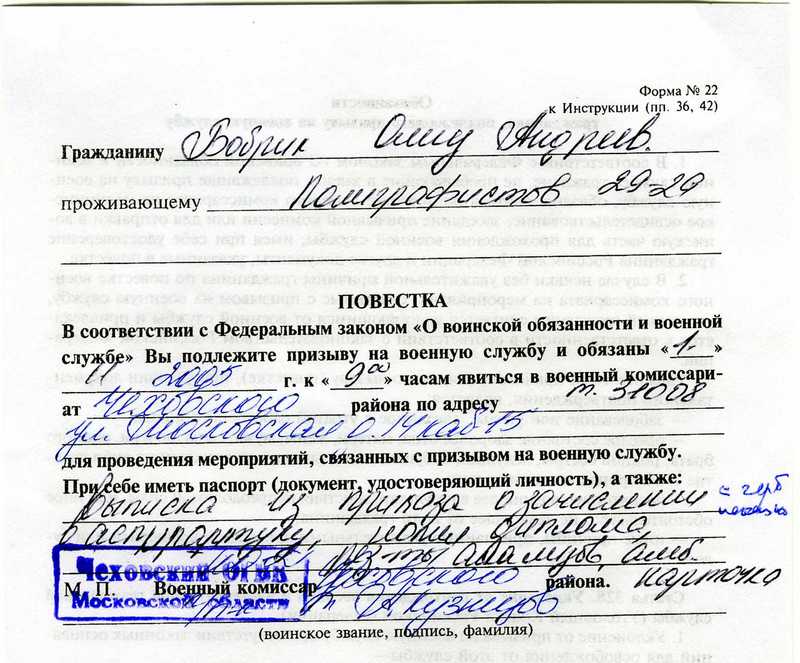 Форма № 22
к Инструкции (пп. 36, 42)
Гражданину Бобрик Олегу Андреев.
проживающему Полиграфистов 29-29
ПОВЕСТКА
В соответствии с Федеральным законом «О воинской обязанности и военной
службе» Вы подлежите призыву на военную службу и обязаны «1»
11 2005 г. к «9⁰⁰» часам явиться в военный комиссари-
ат Чеховского района по адресу т. 31008
ул. Московская д. 14 каб 15
для проведения мероприятий, связанных с призывом на военную службу.
При себе иметь паспорт (документ, удостоверяющий личность), а также:
Выписка из приказа о зачислении с герб
в аспирантуру, копия диплома, печатью
рез-ты анализов, амб.
Чеховский ОГВК
М. П. Военный комиссар Чеховского района. карточка
Московской области
Кузнецов
(воинское звание, подпись, фамилия)